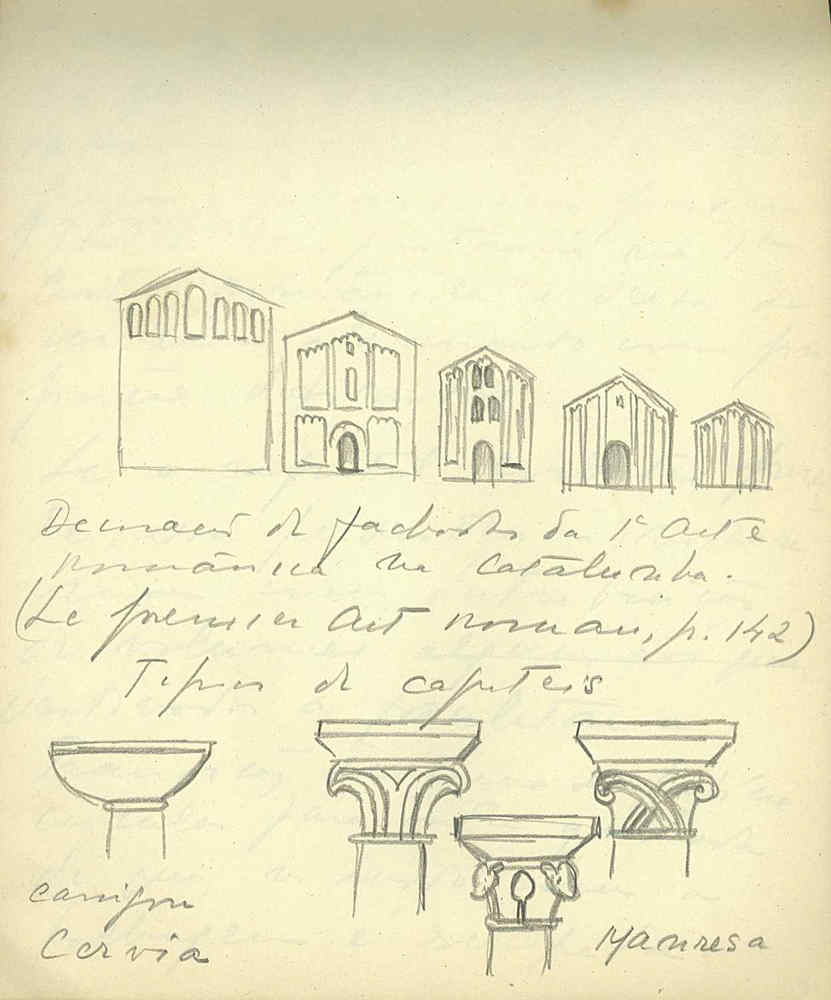 de fachadas da 1ª Arte
românica na Catalunha.
(Le premier Art roman, p. 142)
Tipos de capiteis
Canigou
Cervia
Manresa